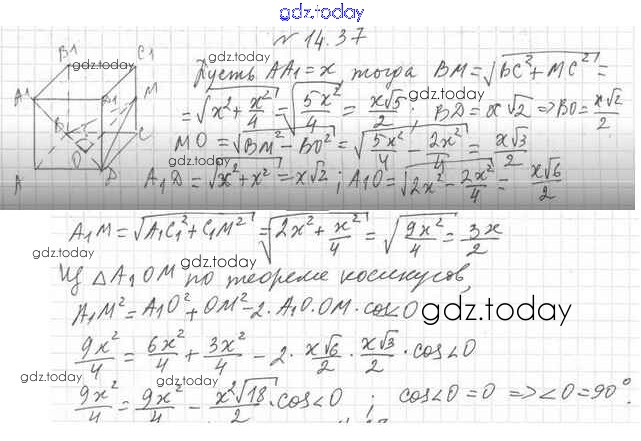 gdz.today
№ 14.37
B1 C1 A1 D1 M B C O A D
Пусть AA1 = x тогда BM = √(BC² + MC²) =
= √(x² + x²/4) = √(5x²/4) = x√5/2 ; BD = x√2 => BO = x√2/2
MO = √(BM² - BO²) = √(5x²/4 - 2x²/4) = x√3/2
A₁D = √(x² + x²) = x√2 ; A₁O = √(2x² - 2x²/4) = x√6/2
A₁M = √(A₁C₁² + C₁M²) = √(2x² + x²/4) = √(9x²/4) = 3x/2
Из △A₁OM по теореме косинусов,
A₁M² = A₁O² + OM² - 2·A₁O·OM·cos∠O
9x²/4 = 6x²/4 + 3x²/4 - 2· x√6/2 · x√3/2 · cos∠O
9x²/4 = 9x²/4 - x²√18/2 · cos∠O ; cos∠O = 0 => ∠O = 90°.
gdz.today
gdz.today
gdz.today
gdz.today
gdz.today
gdz.today
gdz.today
gdz.today
gdz.today
gdz.today
gdz.today